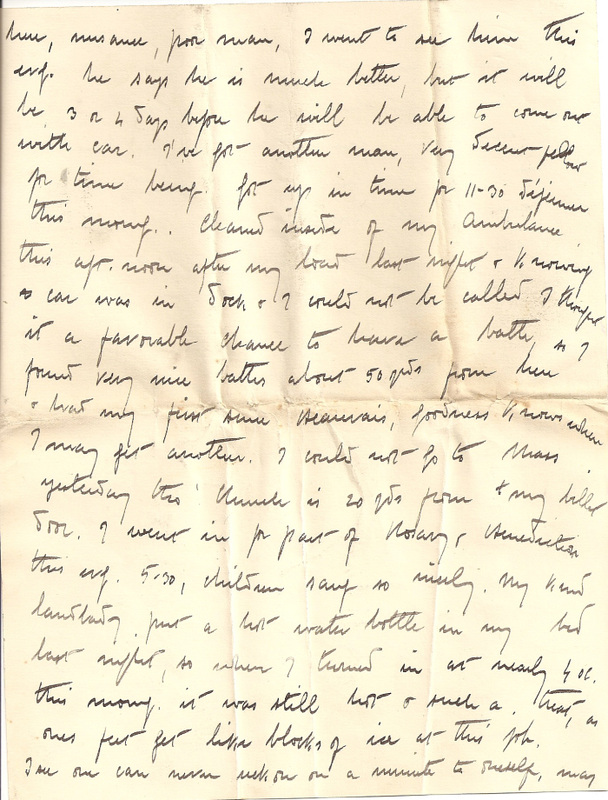 here, nuisance, poor man, I went to see him this
evg. he says he is much better, but it will
be 3 or 4 days before he will be able to come out
with car. I've got another man, very decent fellow
for time being. Got up in time for 11-30 déjeuner
this morng.. Cleaned inside of my Ambulance
this aft. noon after my load last night & knowing
car was in dock & I could not be called I thought
it a favorable chance to have a bath, so I
found very nice baths about 50 yds from here
& had my first since Beauvais, goodness knows when
I may get another. I could not go to Mass
yesterday tho' Church is 20 yds from my billet
door. I went in for part of Rosary & Benediction
this evg. 5-30, children sang so nicely. My kind
landlady put a hot water bottle in my bed
last night, so when I turned in at nearly 4 oc.
this morng. it was still hot & such a treat, as
ones feet get like blocks of ice at this job.
I see one can never reckon on a minute to oneself, may